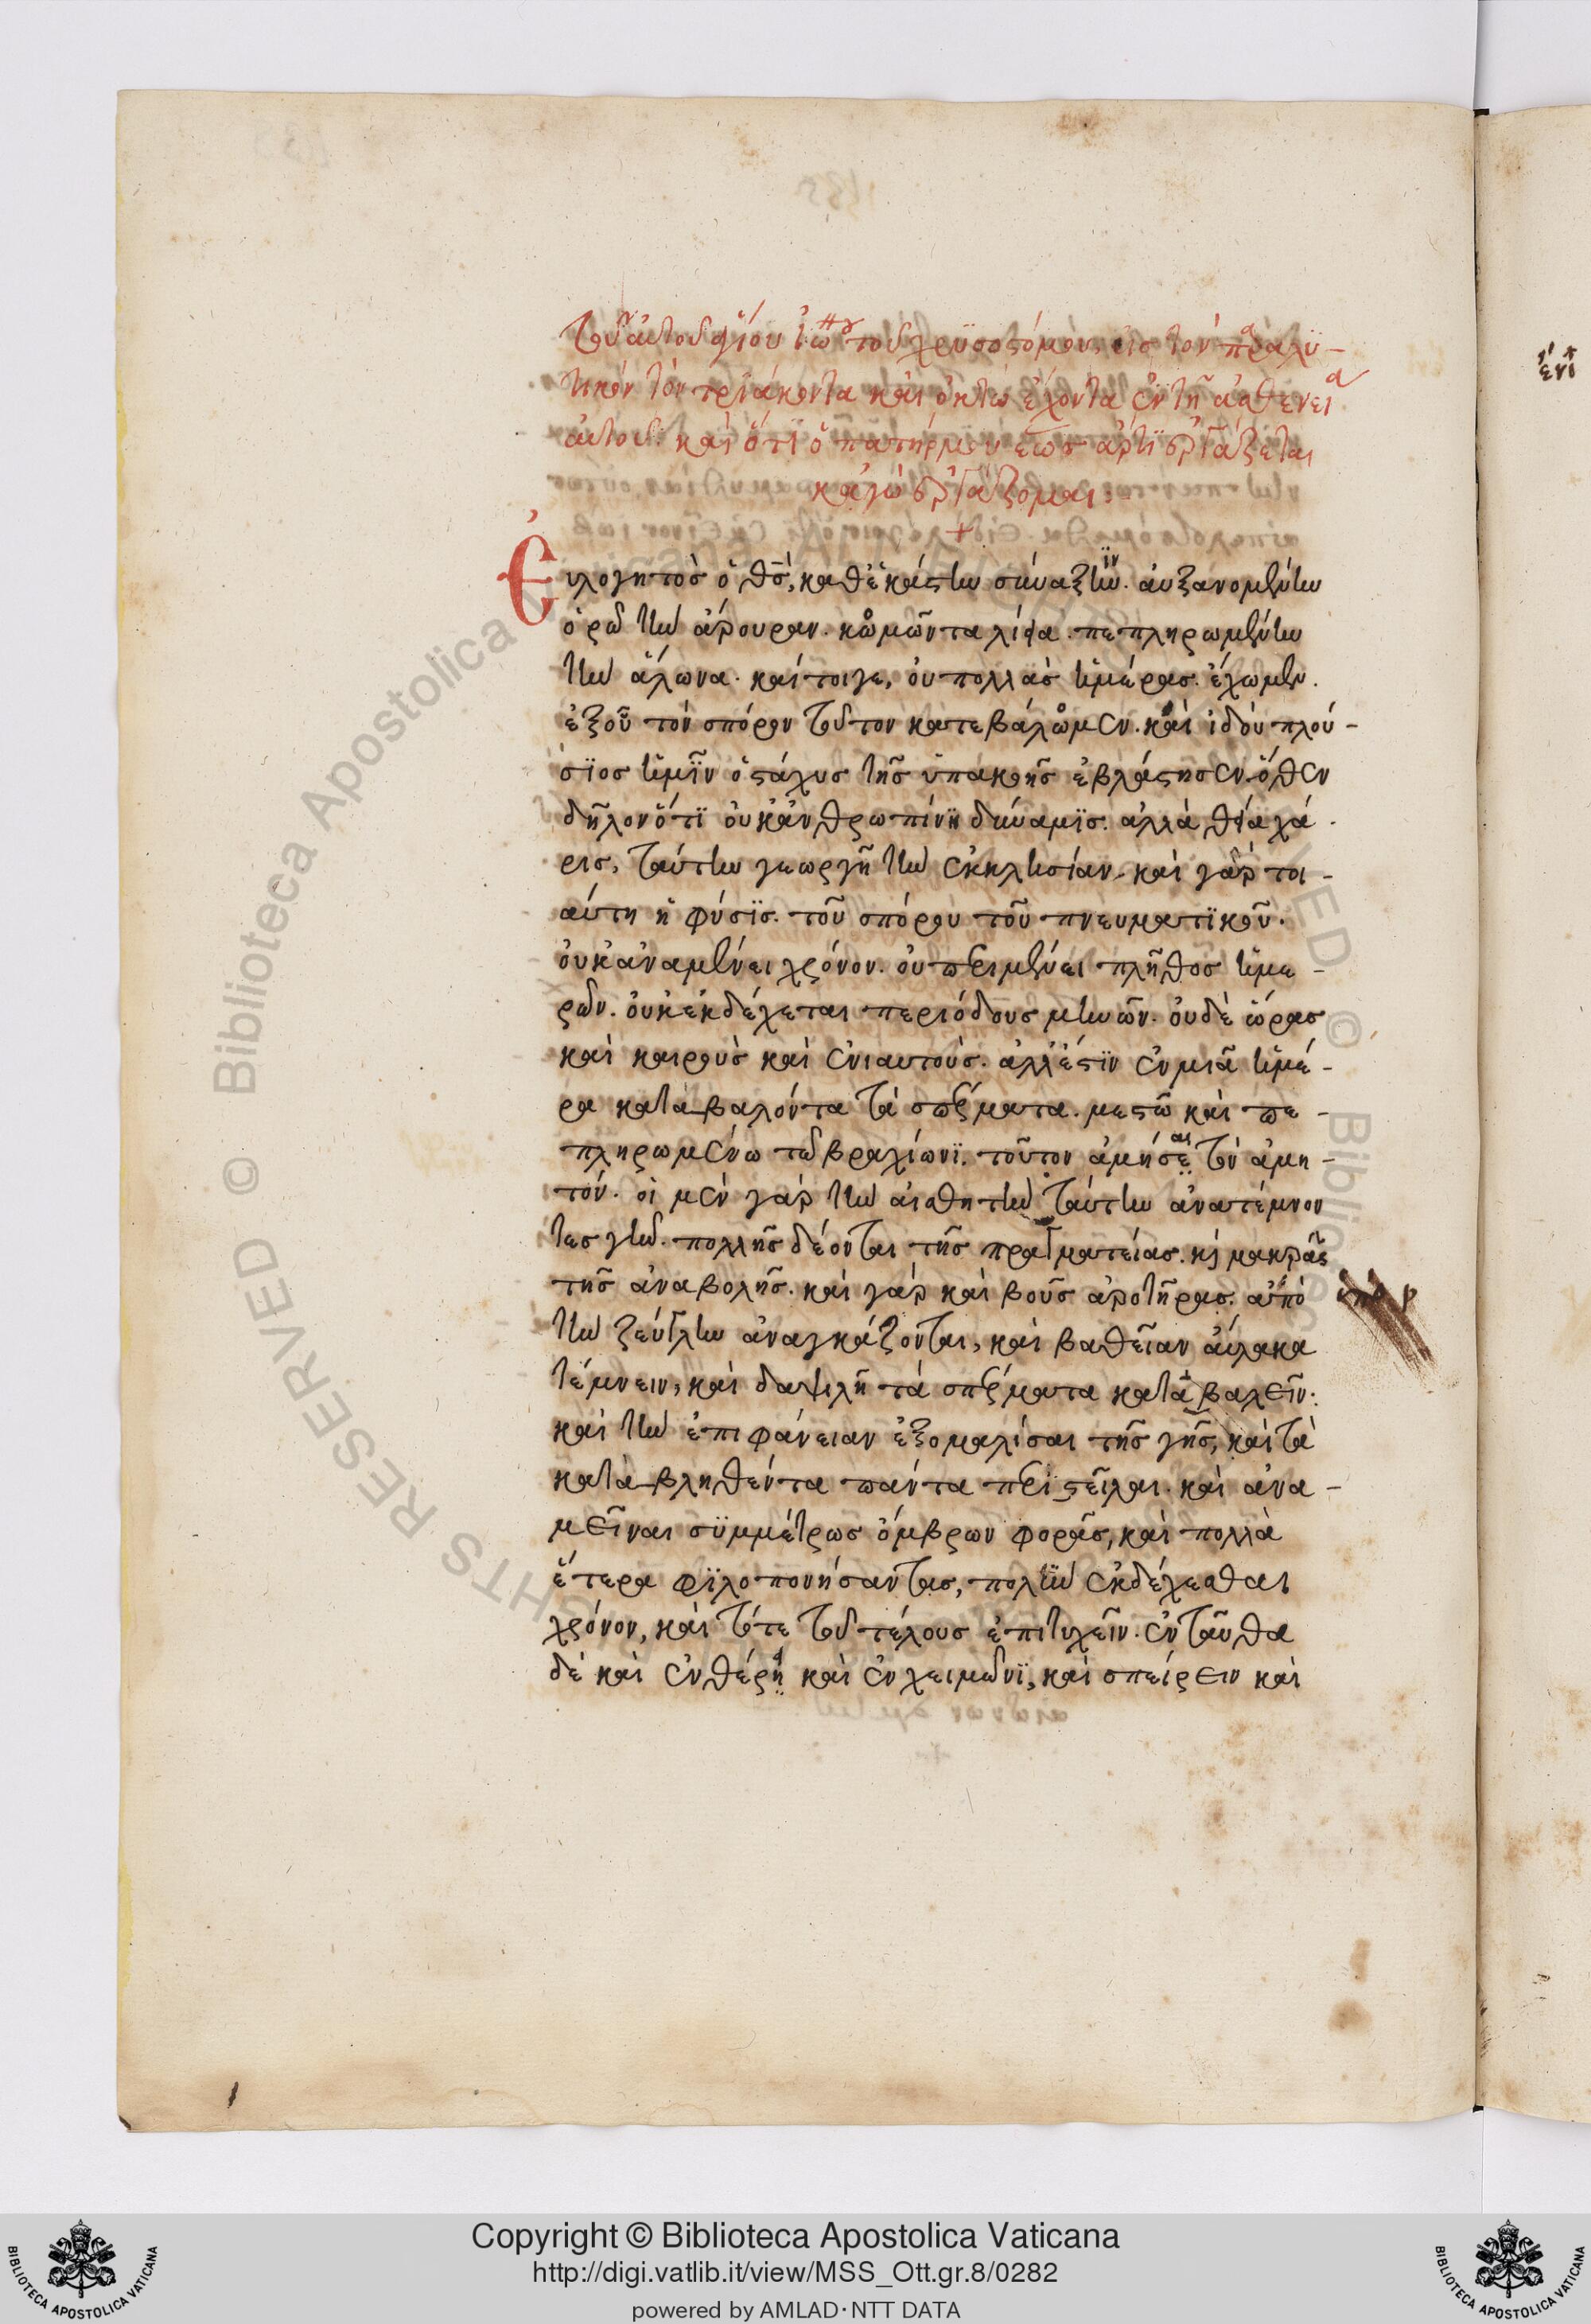 τοῦ ἐν αὐτοῦ ἁγίου ἰω τοῦ χρϋσοστόμου, εἰς τὸν παραλϋ-
τικὸν τὸν τριάκοντα καὶ ὀκτὼ ἔχοντα ἐν τῆ ἀσθενεία
αὐτοῦ: καὶ ὅτϊ ὁ πατήρ μου ἕως ἄρτϊ ἐργάζεται
κἀγὼ ἐργάζομαι:
+
Εὐλογητὸς ὁ θς, καθ ἑκάστην σύναξϊν. αὐξανομένην
ὁρῶ τὴν ἄρουραν. κομῶντα λήϊα. πεπληρωμένην
τὴν ἅλωνα. καίτοιγε, οὐ πολλὰς ἡμέρας ἔχωμεν.
ἐξ οὗ τὸν σπόρον τοῦτον κατεβάλομεν. καὶ ἰδοὺ πλού-
σϊος ἡμῖν ὁ στάχυς τῆς ὑπακοῆς ἐβλάστησεν. ὅθεν
δῆλον ὅτϊ οὐκ ἀνθρωπίνη δύναμϊς. ἀλλὰ θεία χά
ρις, ταύτην γεωργῆ τὴν ἐκκλησίαν. καὶ γὰρ τοι-
αύτη ἡ φύσϊς. τοῦ σπόρου τοῦ πνευματϊκοῦ.
οὐκ ἀναμένει χρόνον. οὐ περιμένει πλῆθος ἡμε-
ρῶν. οὐκ ἐκδέχεται περιόδους μηνῶν. οὐδὲ ὥρας
καὶ καιροὺς καὶ ἐνιαυτούς. ἀλλ ἔστϊν ἐν μιᾶ ἡμέ-
ρα καταβαλόντα τὰ σπέρματα. μεστῶ καὶ πε-
πληρωμένω τῶ βραχίωνϊ. τοῦτον ἀμήσεαι τὸν ἀμη-
τόν. οἱ μὲν γὰρ τὴν αἰσθητὴν ταύτην ἀνατέμνον
τες γῆν. πολλῆς δέονται τῆς πραγματείας. κ μακρᾶς
τῆς ἀναβολῆς. καὶ γὰρ καὶ βοῦς ἀροτῆρας. ὑπὸ
τὴν ζεύγλην ἀναγκάζονται, καὶ βαθεῖαν αὔλακα
τέμνειν, καὶ δαψιλῆ τὰ σπέρματα καταβαλεῖν.
καὶ τὴν ἐπιφάνειαν ἐξομαλίσαι τῆς γῆς, καὶ τὰ
καταβληθέντα πάντα περιστεῖλαι. καὶ ἀνα-
μεῖναι σϋμμέτρως ὄμβρων φορᾶς, καὶ πολλὰ
ἕτερα φϊλοπονήσαντας, πολὺν ἐκδέχεσθαι
χρόνον, καὶ τότε τοῦ τέλους ἐπιτυχεῖν. ἐνταῦθα
δὲ καὶ ἐν θέρη καὶ ἐν χειμῶνϊ, καὶ σπείρειν καὶ
Copyright © Biblioteca Apostolica Vaticana
http://digi.vatlib.it/view/MSS_Ott.gr.8/0282
powered by AMLAD·NTT DATA